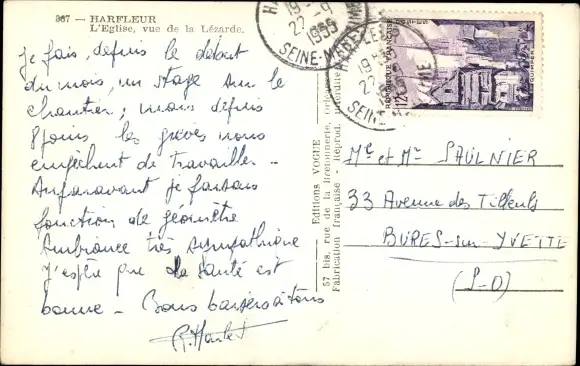 367 — HARFLEUR
L'Eglise, vue de la Lézarde.
je fais, depuis le début
du mois, un stage sur le
chantier; mais depuis
8 jours les grèves nous
empêchent de travailler -
Auparavant je faisais
fonction de géomètre
Ambiance très sympathique
J'espère que la santé est
bonne - Bons baisers à tous
Editions VOGUE
57 bis, rue de la Bretonnerie, Orléans
Fabrication française - Reprod. interdite
19
22-9
1955
SEINE-MARITIME
HARFLEUR
19
22
SEINE
REPUBLIQUE FRANÇAISE
12F
Mr et Me SAULNIER
33 Avenue des Tilleuls
BURES-sur-YVETTE
(S-O)